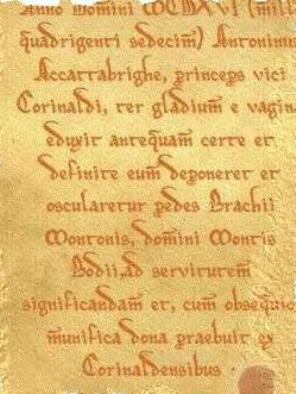 Anno Domini MCMXVI (mille
quadrigenti sedecim) Antoninus
Accattabrighe, princeps vici
Corinaldi, ter gladium e vagina
eduxit antequam certe et
definite eum deponeret et
oscularetur pedes Brachii
Montonis, domini Montis
Bodii, ad servitutem
significandam et, cum obsequio
munifica dona praebuit ex
Corinaldensibus .